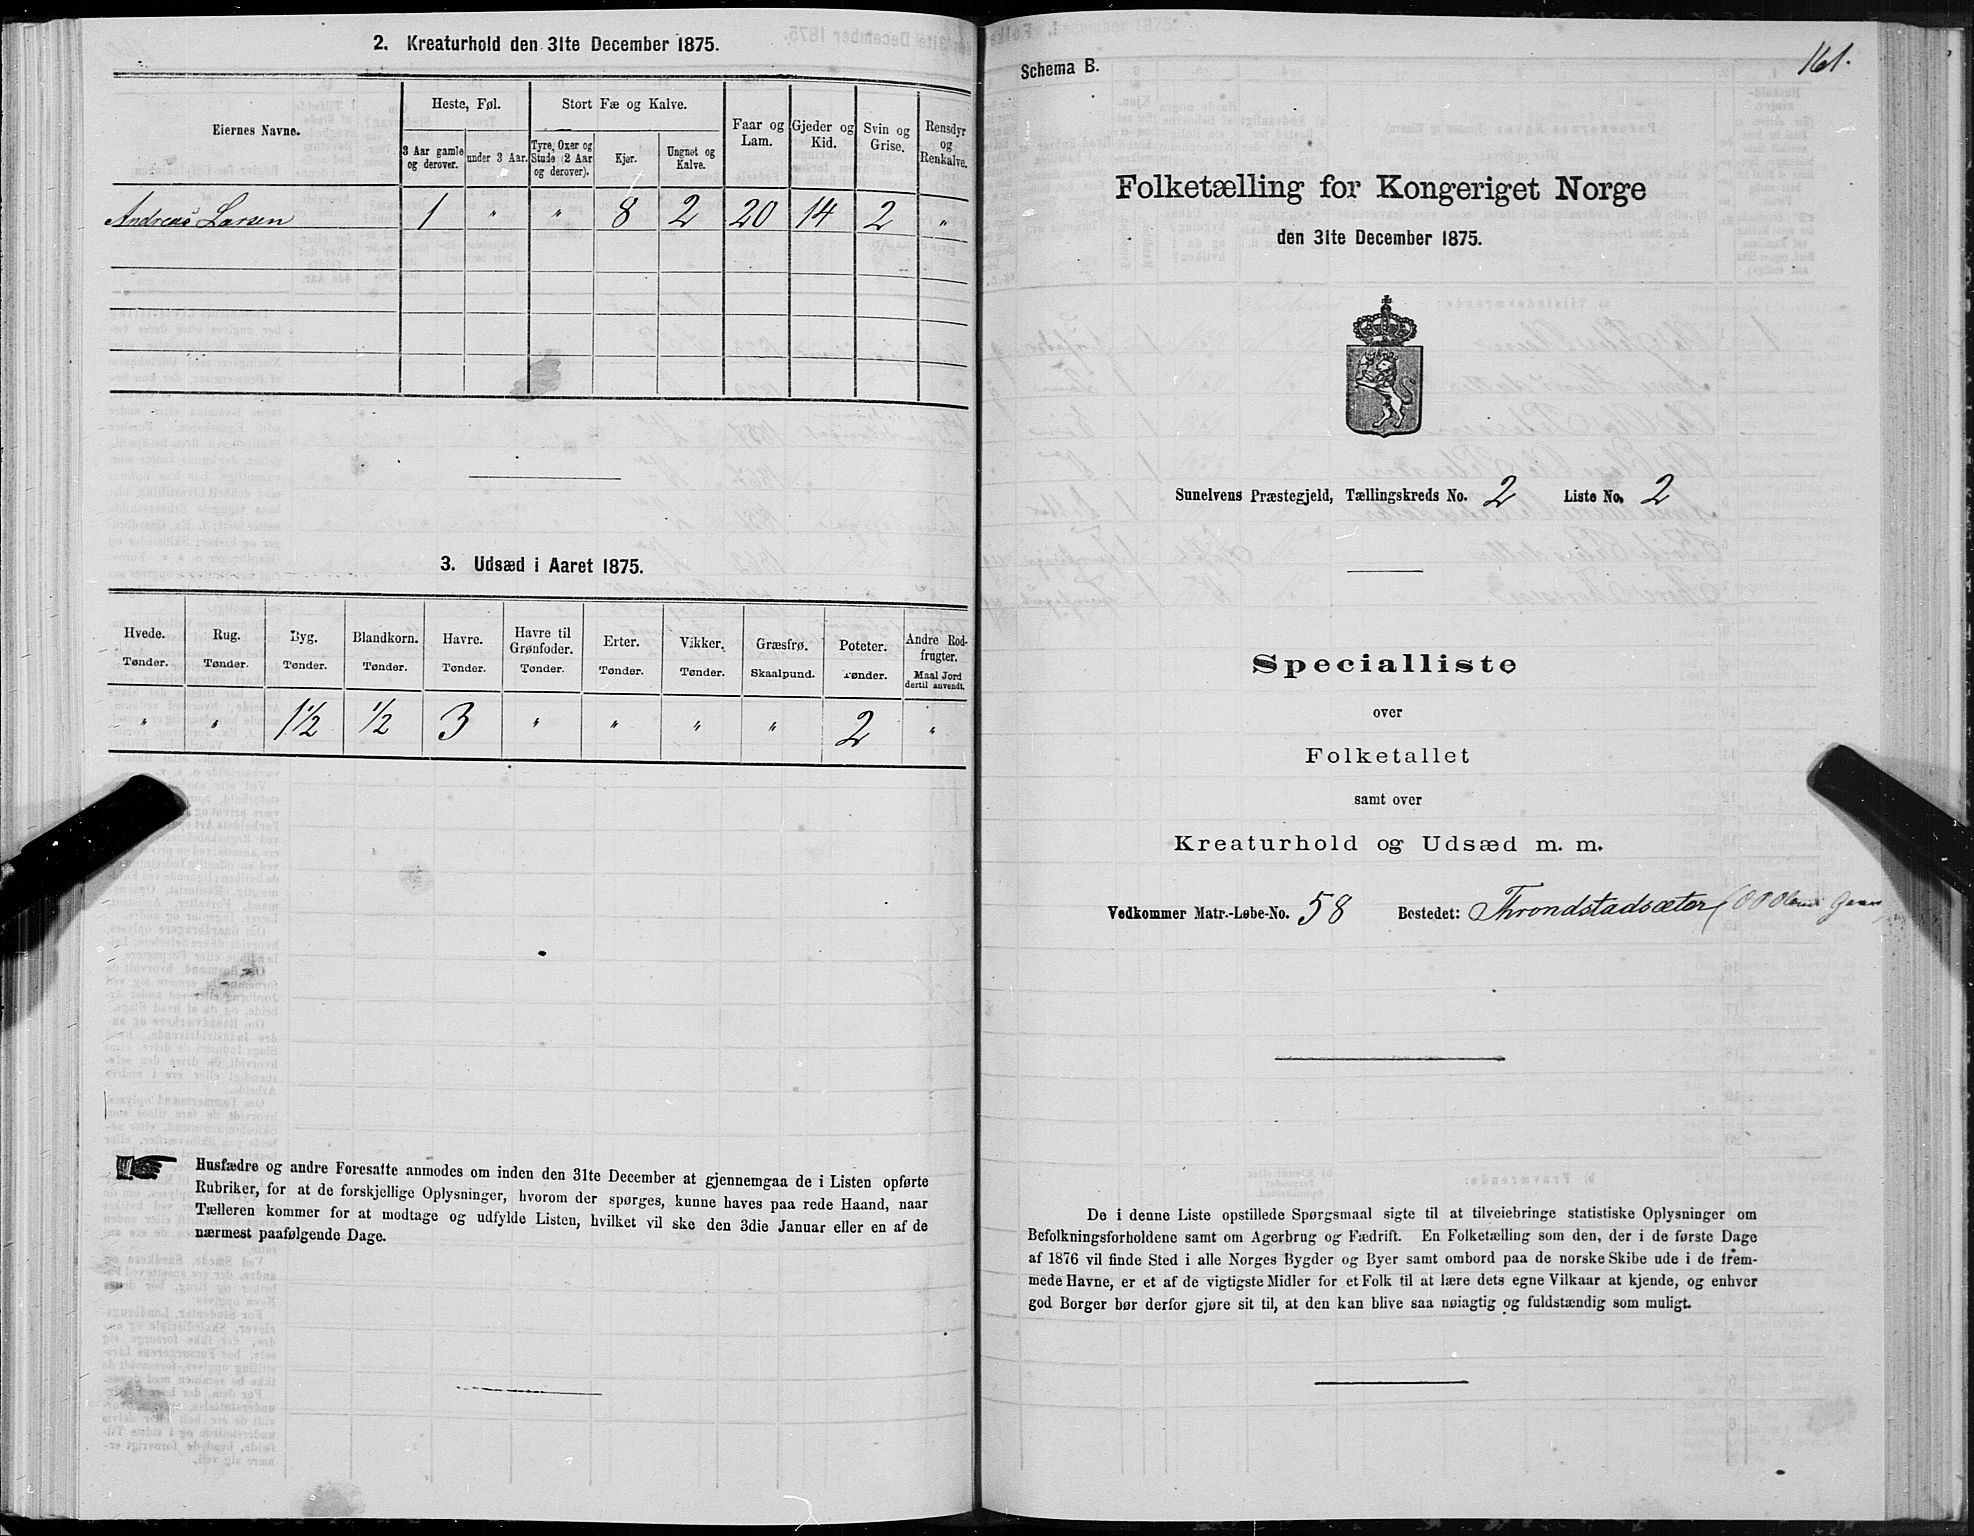 2. Kreaturhold den 31te December 1875.
Eiernes Navne.
Heste, Føl.
Stort Fæ og Kalve.
Faar og Lam.
Gjeder og Kid.
Svin og Grise.
Rensdyr og Renkalve.
3 Aar gamle og derover.
under 3 Aar.
Tyre, Oxer og Stude (2 Aar og derover).
Kjør.
Ungnøt og Kalve.
Andreas Larsen 1 " " 8 2 20 14 2 "
3. Udsæd i Aaret 1875.
Hvede. Rug. Byg. Blandkorn. Havre. Havre til Grønfoder. Erter. Vikker. Græsfrø. Poteter. Andre Rodfrugter.
Tønder. Tønder. Tønder. Tønder. Tønder. Tønder. Tønder. Tønder. Skaalpund. Tønder. Maal Jord dertil anvendt.
" " 1½ ½ 3 " " " " 2 "
Husfædre og andre Foresatte anmodes om inden den 31te December at gjennemgaa de i Listen opførte
Rubriker, for at de forskjellige Oplysninger, hvorom der spørges, kunne haves paa rede Haand, naar
Tælleren kommer for at modtage og udfylde Listen, hvilket vil ske den 3die Januar eller en af de
nærmest paafølgende Dage.
161.
Schema B.
Folketælling for Kongeriget Norge
den 31te December 1875.
Sunelvens Præstegjeld, Tællingskreds No. 2 Liste No. 2
Specialliste
over
Folketallet
samt over
Kreaturhold og Udsæd m. m.
Vedkommer Matr.-Løbe-No. 58 Bostedet: Throndstadsæter
De i denne Liste opstillede Spørgsmaal sigte til at tilveiebringe statistiske Oplysninger om
Befolkningsforholdene samt om Agerbrug og Fædrift. En Folketælling som den, der i de første Dage
af 1876 vil finde Sted i alle Norges Bygder og Byer samt ombord paa de norske Skibe ude i de frem-
mede Havne, er et af de vigtigste Midler for et Folk til at lære dets egne Vilkaar at kjende, og enhver
god Borger bør derfor gjøre sit til, at den kan blive saa nøiagtig og fuldstændig som muligt.